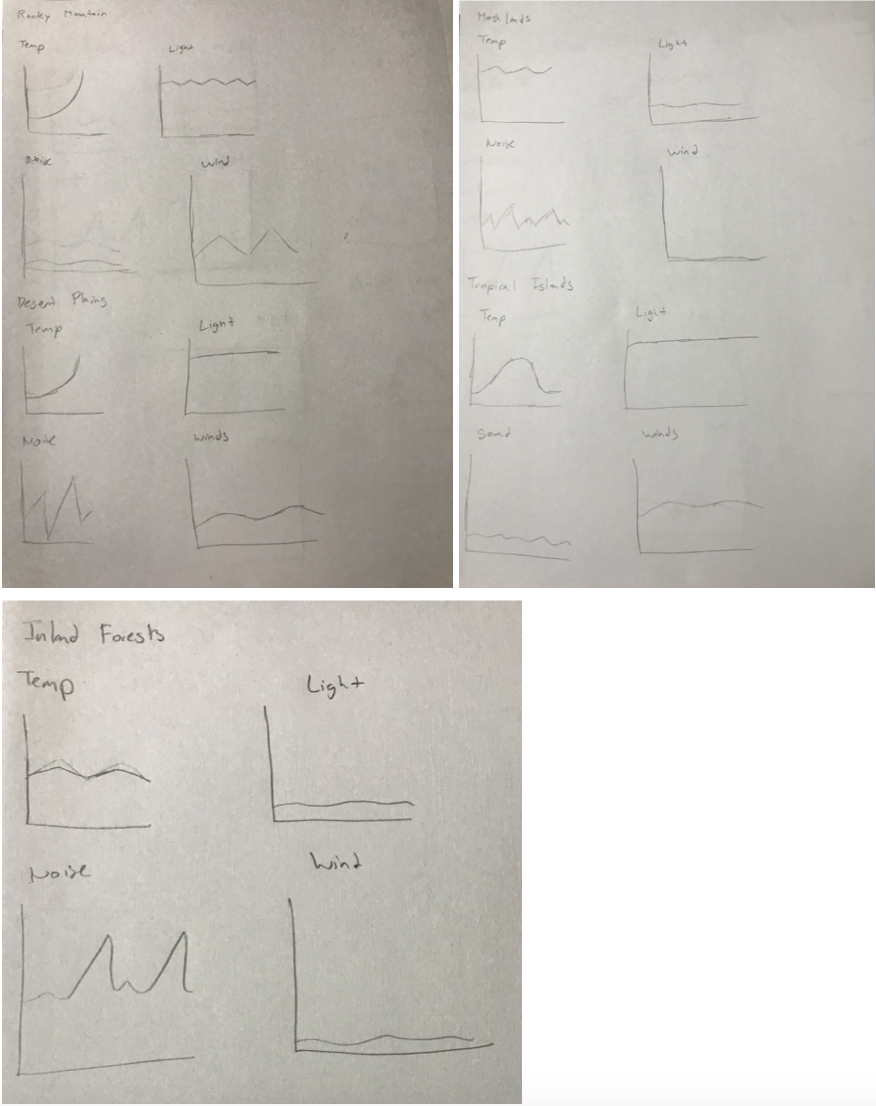 Rocky Mountain
Temp
Light
Noise
Wind
Desert Plains
Temp
Light
Noise
Winds
Mash lands
Temp
Light
Noise
Wind
Tropical Islands
Temp
Light
Sound
Winds
Inland Forests
Temp
Light
Noise
Wind